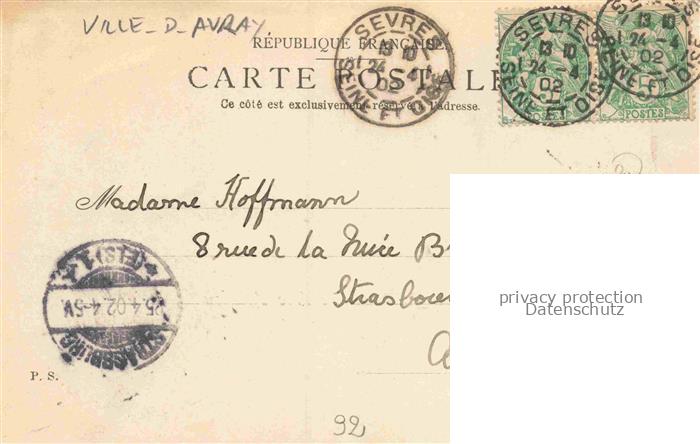 VILLE_D_AVRAY
RÉPUBLIQUE FRANÇAISE
CARTE POSTALE
Ce côté est exclusivement réservé à l'adresse.
SEVRES
13 10
24 -4
02
SEINE ET OISE
SEVRES
13 10
24 -4
02
SEINE ET OISE
SEVRES
13 10
24 -4
02
SEINE ET OISE
POSTES
POSTES
Madame Hoffmann
8 rue de la
Strasbou
privacy protection
Datenschutz
* (ELS) 1.
25.4.02.4-5V.
STRASSBURG
P. S.
92